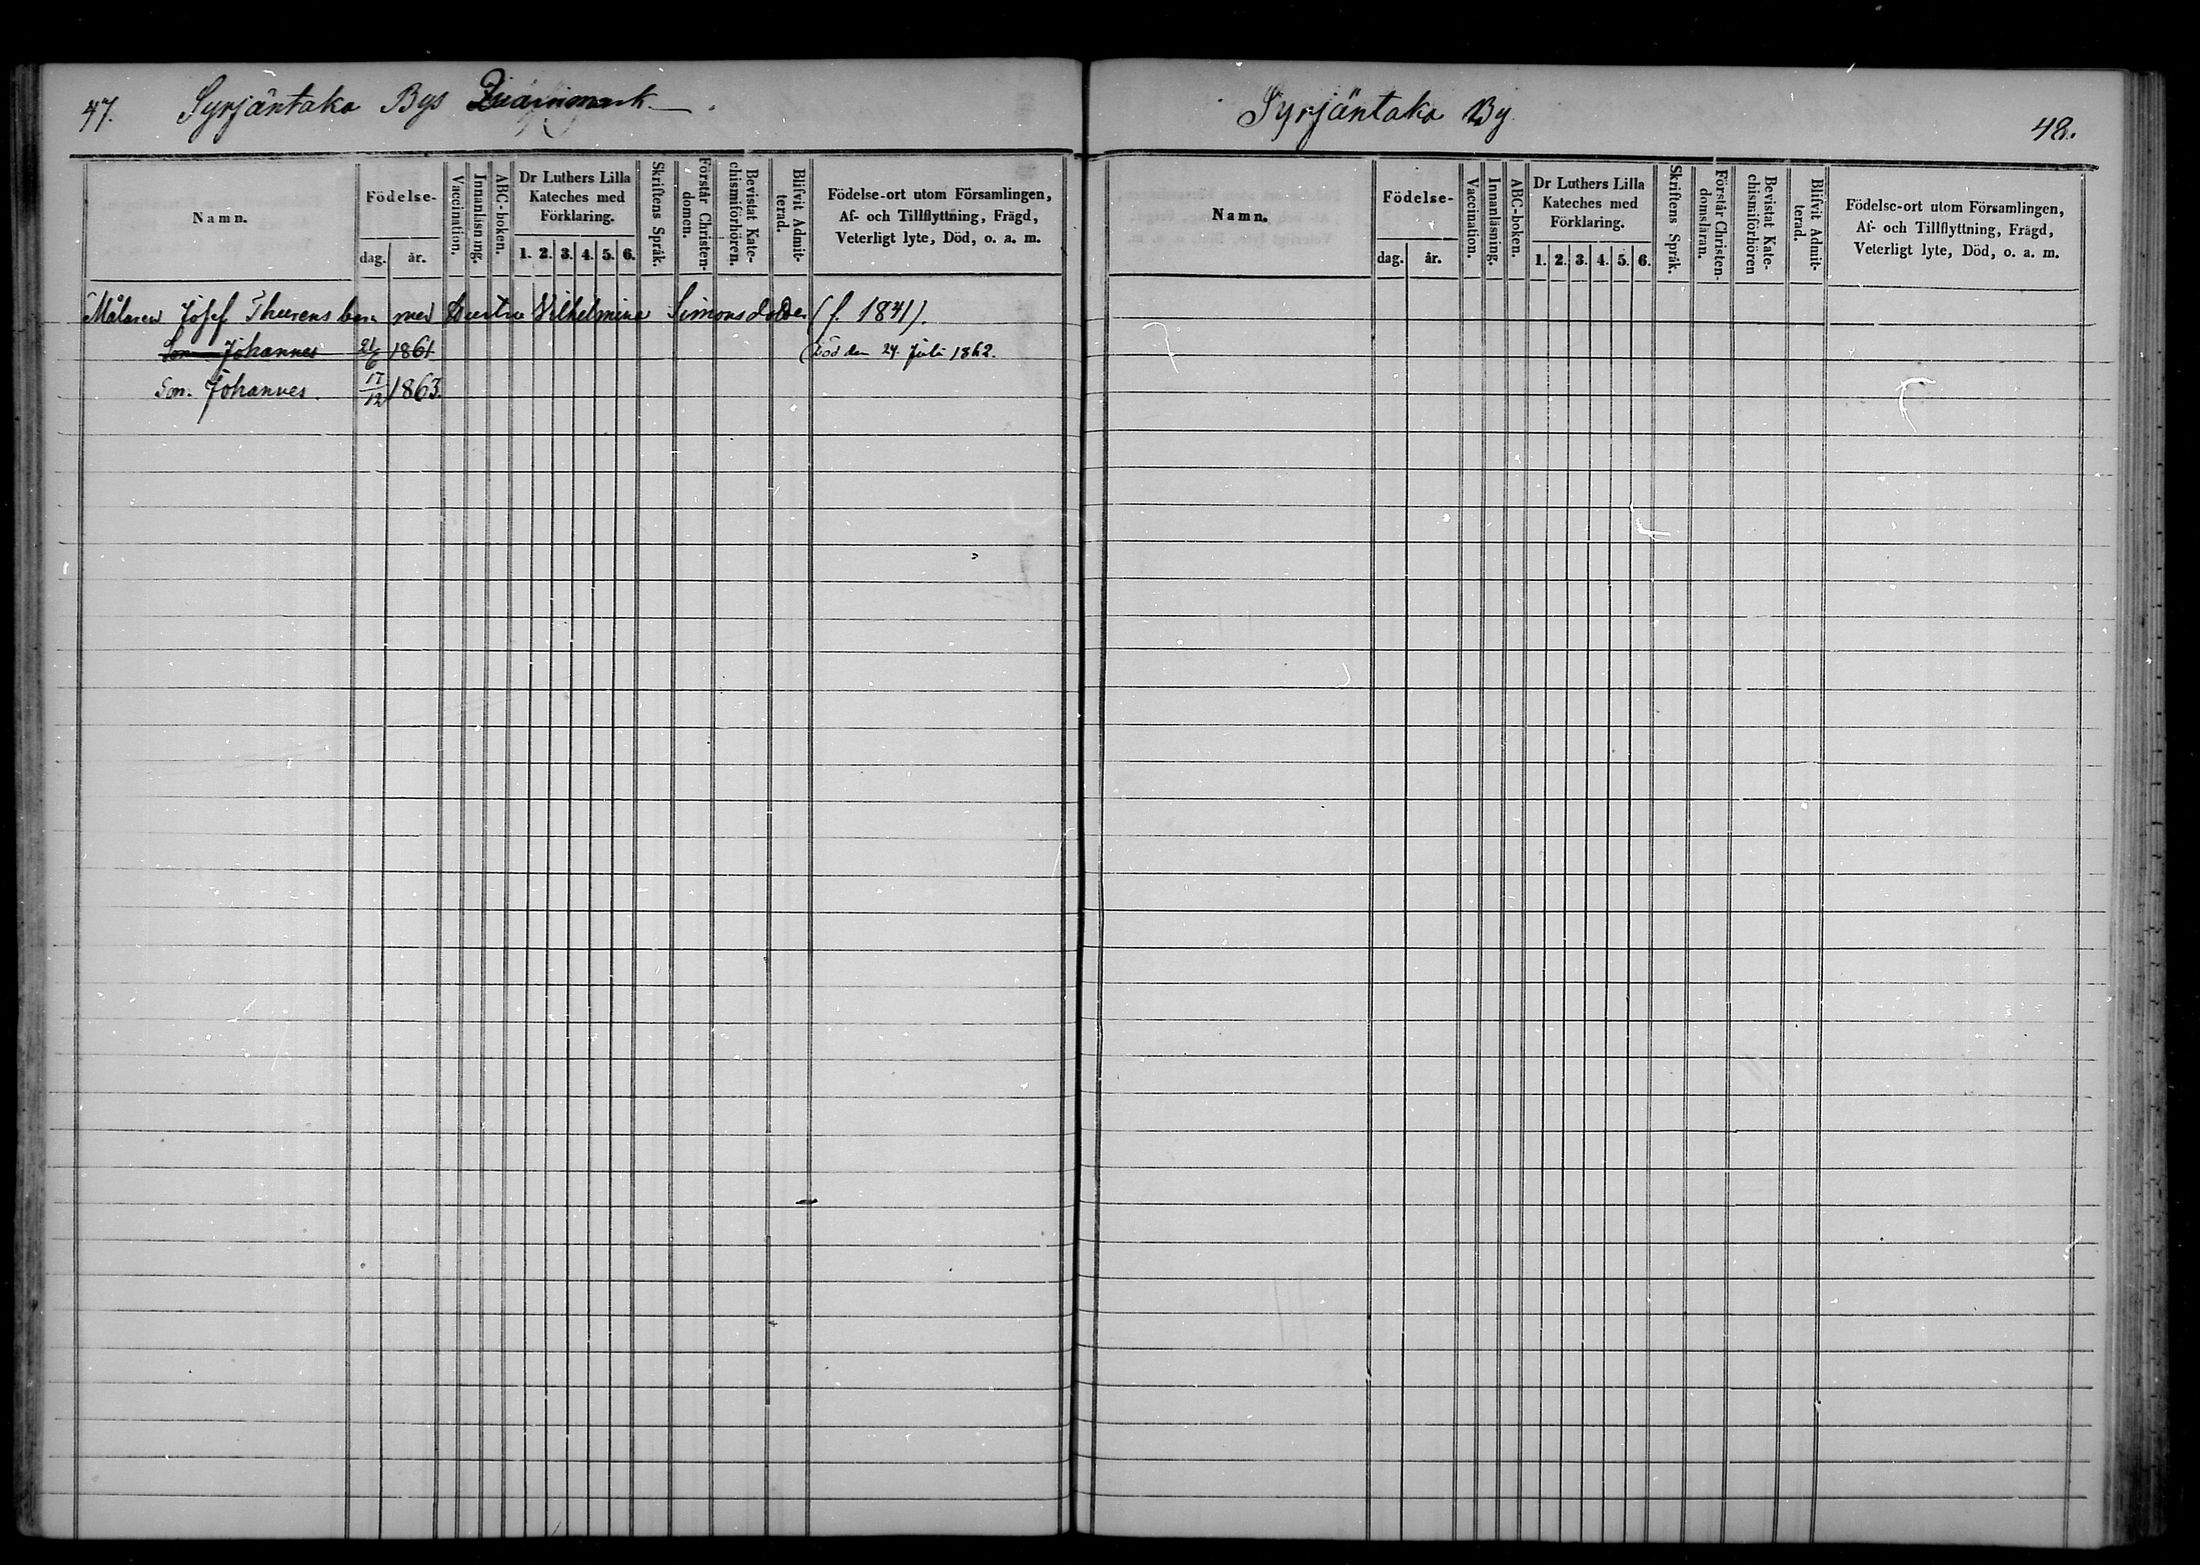 47. Syrjäntaka Bys
Namn. Födelse- dag. år. Vaccination. Innanläsning. ABC-boken. Dr Luthers Lilla Kateches med Förklaring. 1. 2. 3. 4. 5. 6. Skriftens Språk. Förstår Christen-domen. Bevistat Kate-chismiförhören. Blifvit Admit-terad. Födelse-ort utom Församlingen, Af- och Tillflyttning, Frägd, Veterligt lyte, Död, o. a. m.
Målaren Josef Thurens barn med Vilhelmina Simonsdotter (f. 1841).
Son Johannes 21/6 1861 Död den 24. Juli 1862.
Son. Johannes. 17/12 1863.
Syrjäntaka By. 48.
Namn. Födelse- dag. år. Vaccination. Innanläsning. ABC-boken. Dr Luthers Lilla Kateches med Förklaring. 1. 2. 3. 4. 5. 6. Skriftens Språk. Förstår Christen-domsläran. Bevistat Kate-chismiförhören Blifvit Admit-terad. Födelse-ort utom Församlingen, Af- och Tillflyttning, Frägd, Veterligt lyte, Död, o. a. m.